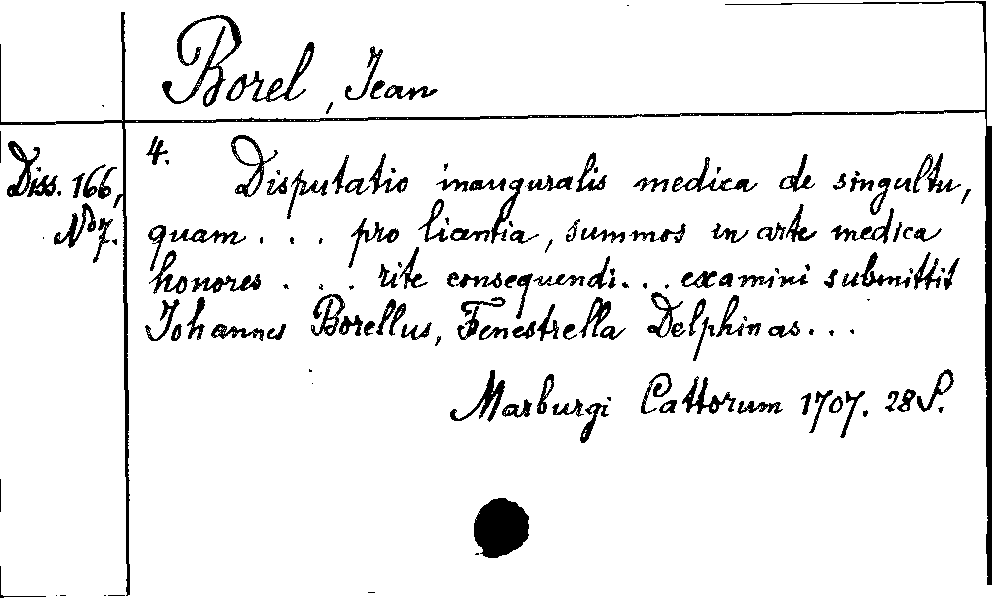 Borel, Jean
Diss. 166,
No 7.
4. Disputatio inauguralis medica de singultu,
quam . . . pro licentia, summos in arte medica
honores . . . rite consequendi . . . examini submittit
Johannes Borellus, Fenestrella Delphinas . . .
Marburgi Cattorum 1707. 28 S.